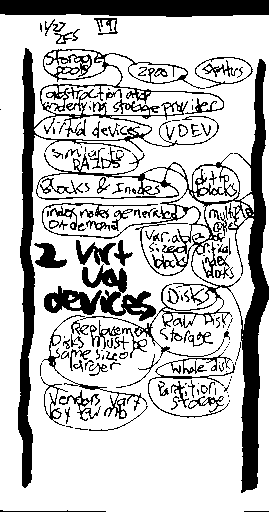 11/27 19
ZFS
Storage pools
zpool
abstraction and underlying storage provider
Virtual devices
VDEV
Similar to RAIDS
Blocks & Inodes
ditto blocks
index nodes generated on demand
multiple
Variable sized blocks
critical index blocks
2 Virt
ual
devices
Disks
Replacement Disks must be same size or larger
Raw Disk Storage
Whole disk
Partition Storage
Vendors vary by few mb